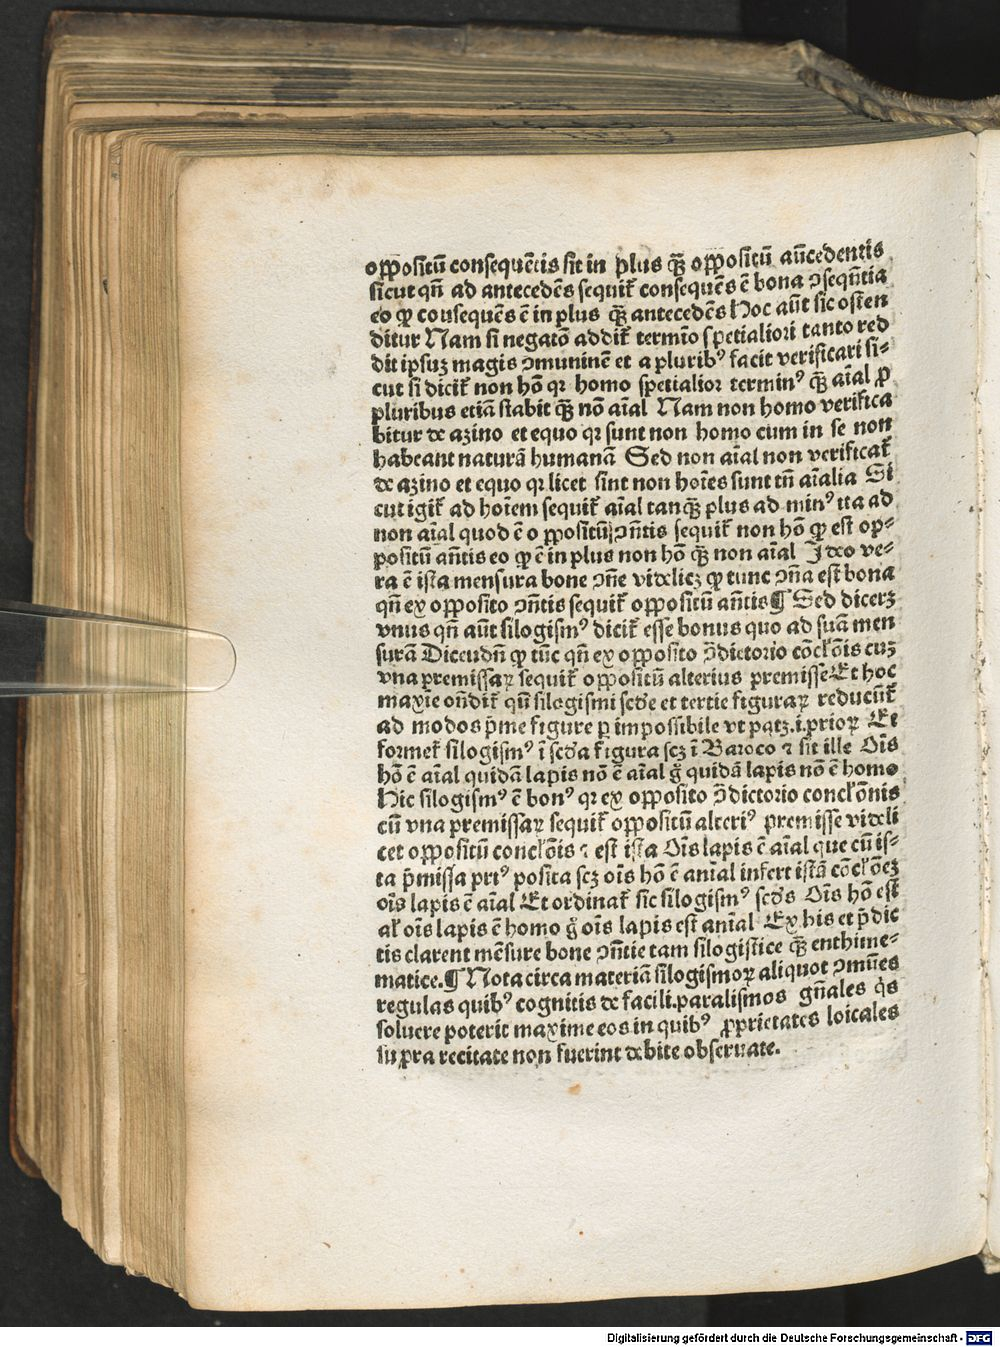 oppositū consequētis sit in plus q̄ꝫ oppositū añcedentis
sicut qñ ad antecedēs sequit̃ consequēs ē bona ꝯseqñtia
eo ꝙ consequēs ē in plus q̄ꝫ antecedēs Hoc aūt sic osten
ditur Nam si negatō addit̃ termīo spetialiori tanto red
dit ipsuꝫ magis ꝯmuninē et a pluribꝰ facit verificari si⸗
cut si dicit̃ non hō qꝛ homo spetialior terminꝰ q̄ꝫ aīal ꝓ
pluribus etiā stabit q̄ꝫ nō aīal Nam non homo verifica
bitur de azino et equo qꝛ sunt non homo cum in se non
habeant naturā humanā Sed non aīal non verificat̃
de azino et equo qꝛ licet sint non hoīes sunt tñ aīalia Si
cut igit̃ ad hoīem sequit̃ aīal tanq̄ꝫ plus ad minꝰ ita ad
non aīal quod ē oppositū ꝯñtis sequit̃ non hō ꝙ est op⸗
positū añtis eo ꝙ ē in plus non hō q̄ꝫ non aīal Ideo ve⸗
ra ē ista mensura bone ꝯñe videlicꝫ ꝙ tunc ꝯña est bona
qñ ex opposito ꝯñtis sequit̃ oppositū añtis ¶ Sed dicerꝫ
vnus qñ aūt silogismꝰ dicit̃ esse bonus quo ad suā men
surā Dicendū ꝙ tūc qñ ex opposito ꝯ̄dictorio cōcl̄ōis cuꝫ
vna premissaꝝ sequit̃ oppositū alterius premisse Et hoc
maxīe oñdit̃ qñ silogismi scd̄e et tertie figuraꝝ reducūt̃
ad modos p̄me figure ꝑ impossibile vt patꝫ .i. prioꝝ Et
formet̃ silogismꝰ ī scd̄a figura scꝫ ī Baroco ⁊ sit ille Oīs
hō ē aīal quidā lapis nō ē aīal g̊ quidā lapis nō ē homo
Hic silogismꝰ ē bonꝰ qꝛ ex opposito ꝯ̄dictorio concl̄ōnis
cū vna premissaꝝ sequit̃ oppositū alteriꝰ premisse videli
cet oppositū concl̄ōis ⁊ est ista Oīs lapis ē aīal que cū is⸗
ta p̄missa priꝰ posita scꝫ oīs hō ē anīal infert istā cōcl̄ōeꝫ
oīs lapis ē aīal Et ordinat̃ sic silogismꝰ scd̄s Oīs hō est
al̄ oīs lapis ē homo g̊ oīs lapis est anīal Ex his et p̄dic
tis clarent mēsure bone ꝯñtie tam silogistice q̄ꝫ enthime⸗
matice. ¶ Nota circa materiā silogismoꝝ aliquot ꝯmūes
regulas quibꝰ cognitis de facili. paralismos gñales q̊s
soluere poterit maxime eos in quibꝰ ꝓprietates loicales
supra recitate non fuerint debite obseruate.
Digitalisierung gefördert durch die Deutsche Forschungsgemeinschaft - DFG